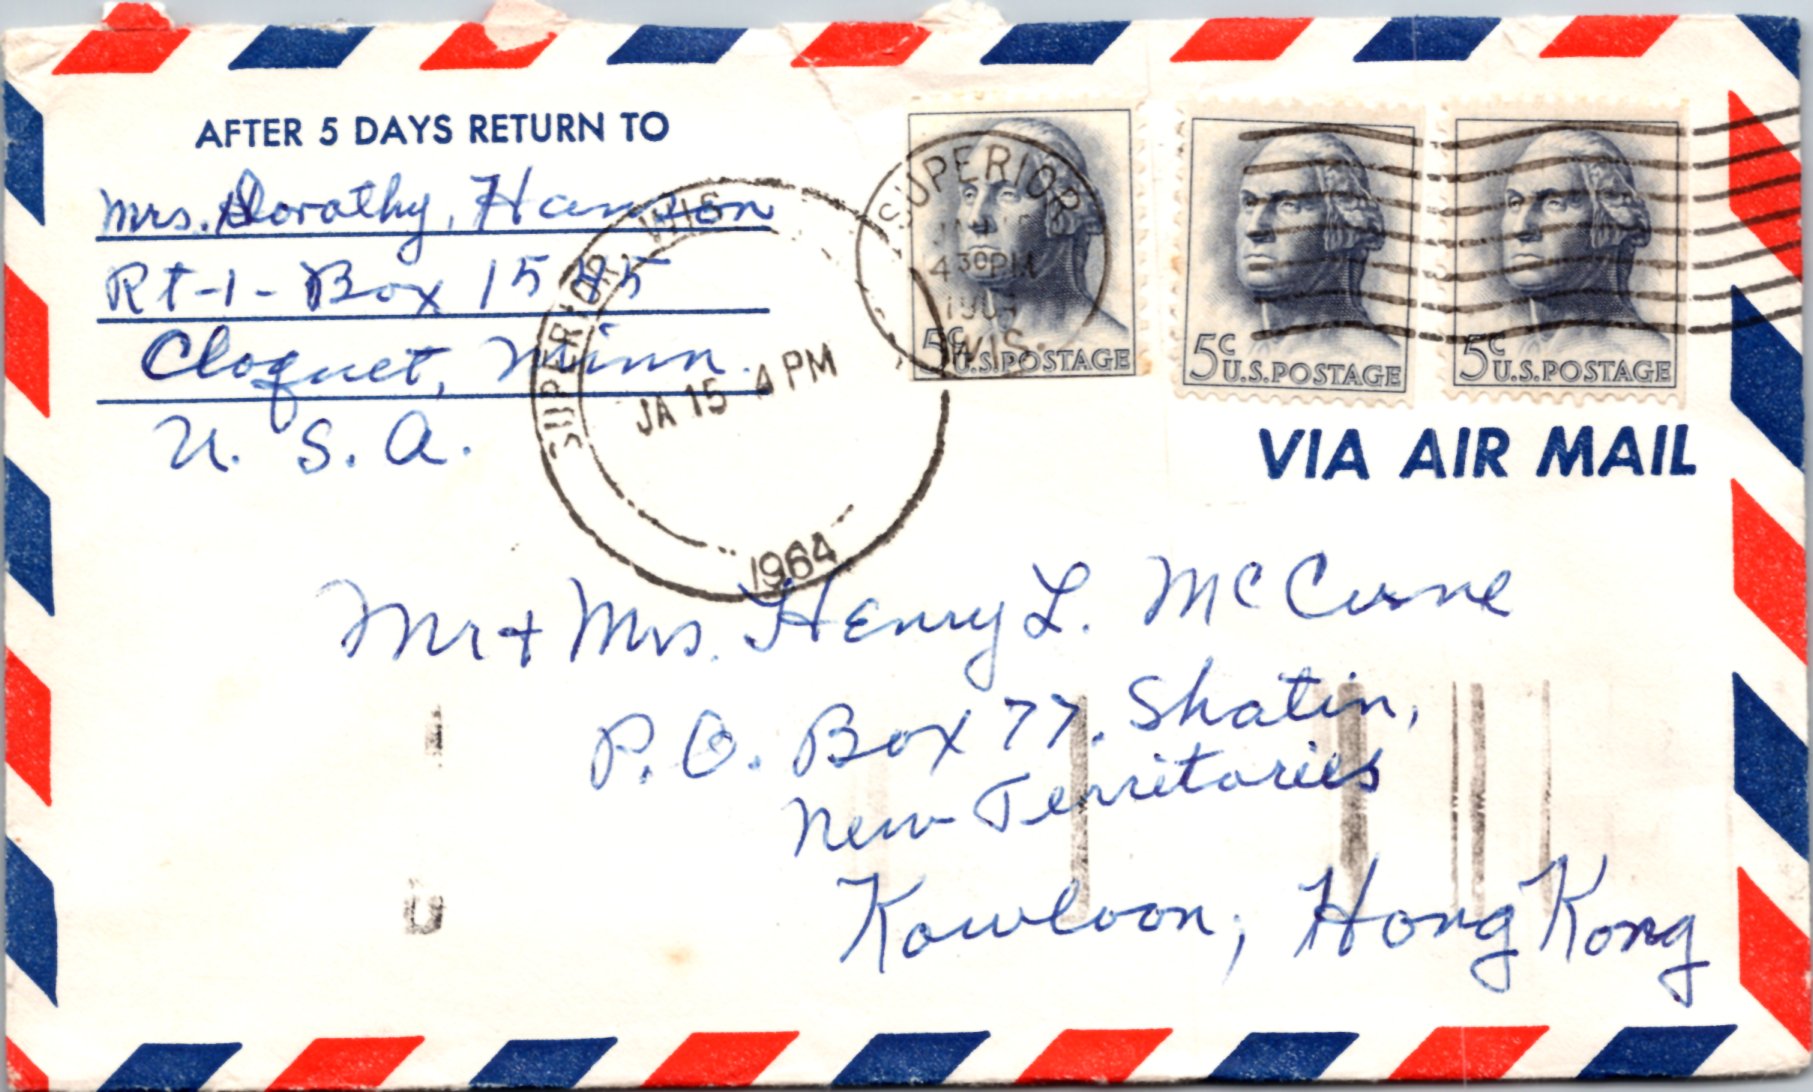 AFTER 5 DAYS RETURN TO
Mrs. Dorothy, Hanson
Rt-1- Box 15
Cloquet, Minn.
U. S. A.
SUPERIOR, WIS
JA 15 4 PM
1964
SUPERIOR
4 30 PM
WIS.
5c U.S. POSTAGE
5c U.S. POSTAGE
5c U.S. POSTAGE
VIA AIR MAIL
Mr + Mrs. Henry L. McCune
P. O. Box 77, Shatin,
New Territories
Kowloon, Hong Kong